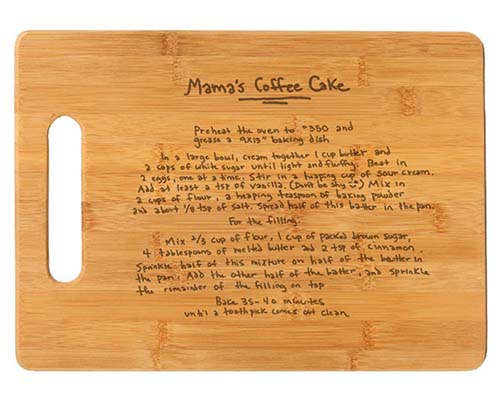 Mama's Coffee Cake
Preheat the oven to °350 and
grease a 9x13" baking dish
In a large bowl, cream together 1 cup butter and
2 cups of white sugar until light and fluffy. Beat in
2 eggs, one at a time. Stir in a heaping cup of sour cream.
Add at least a tsp of vanilla. (Don't be shy) Mix in
2 cups of flour, a heaping teaspoon of baking powder
and about 1/8 tsp of salt. Spread half of this batter in the pan.
For the filling:
Mix 2/3 cup of flour, 1 cup of packed brown sugar,
4 tablespoons of melted butter and 2 tsp of cinnamon
Sprinkle half of this mixture on half of the batter in
the pan. Add the other half of the batter, and sprinkle
the remainder of the filling on top
Bake 35-40 minutes
until a toothpick comes out clean